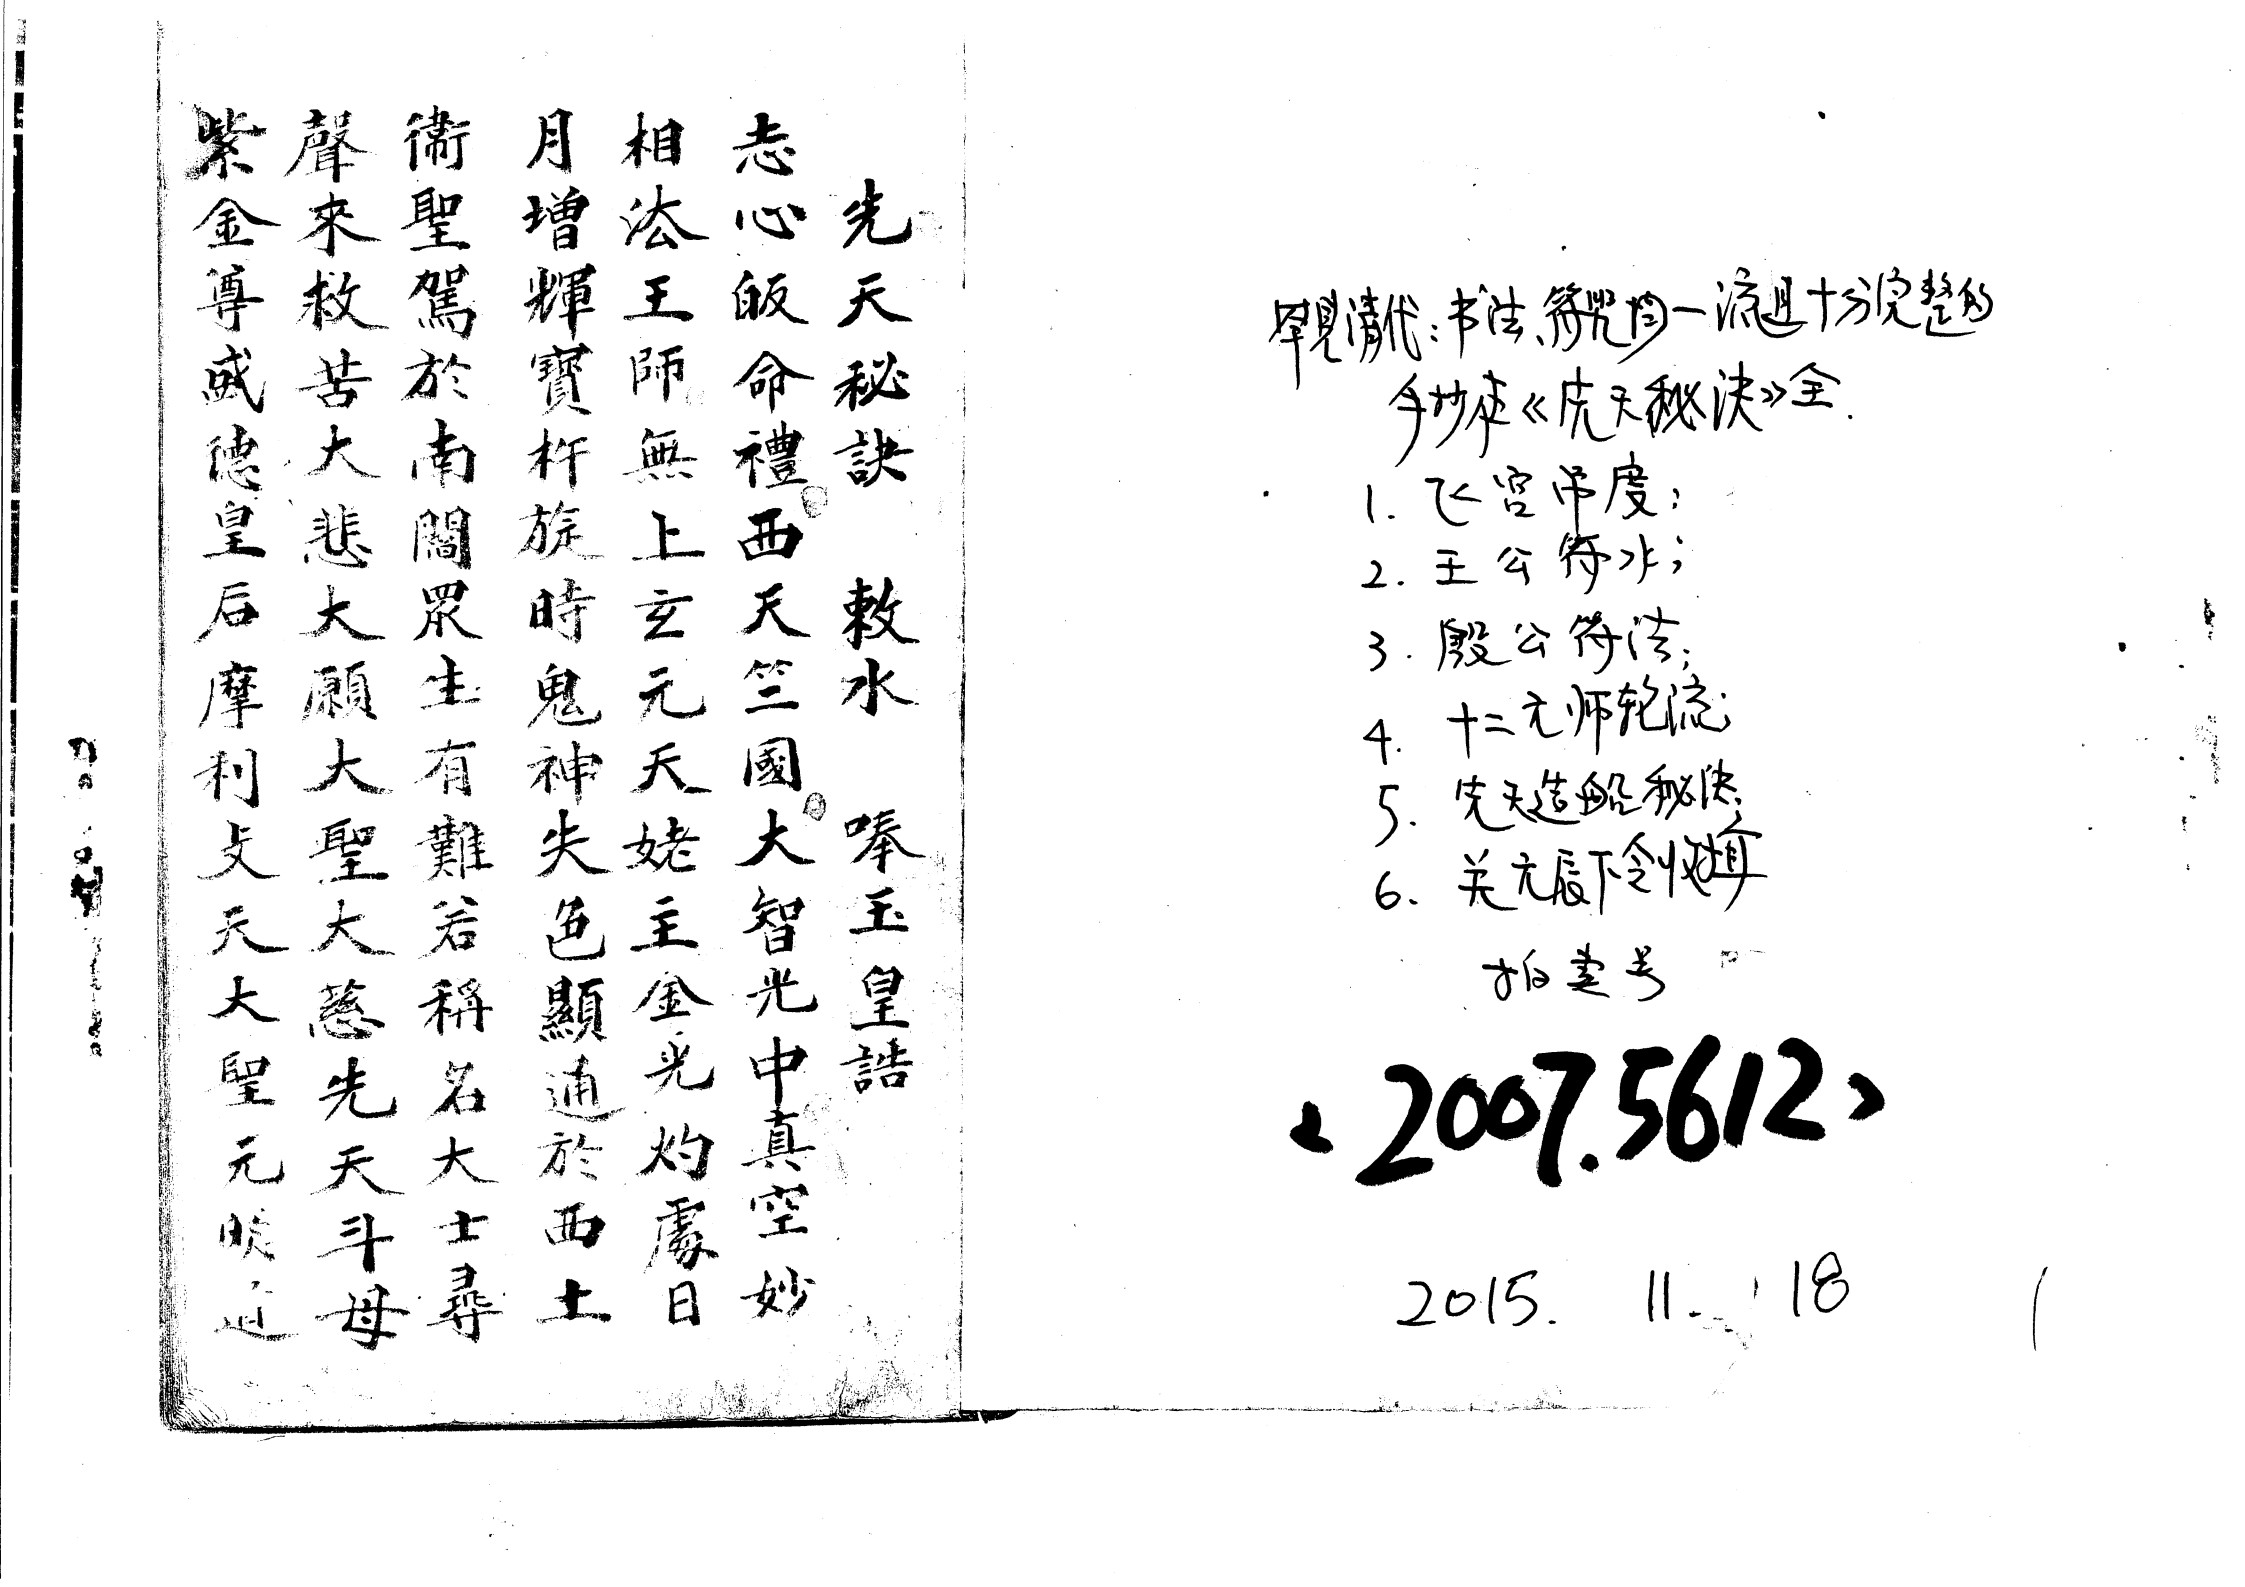 罕见清代：书法、符咒均一流且十分完整的
手抄本《先天秘决》全.
1. 飞宫吊度；
2. 王公符水；
3. 殷公符法；
4. 十二元师轮流；
5. 先天造船秘决；
6. 关元辰下令收
拍卖号
2007.5612
2015. 11. 18
先天秘訣 敕水 唪玉皇誥
志心皈命禮西天竺國大智光中真空妙
相法王師無上玄元天姥主金光灼處日
月增輝寶杵旋時鬼神失色顯通於西土
衛聖駕於南閻眾生有難若稱名大士尋
聲來救苦大悲大願大聖大慈先天斗母
紫金尊威德皇后摩利支天大聖元